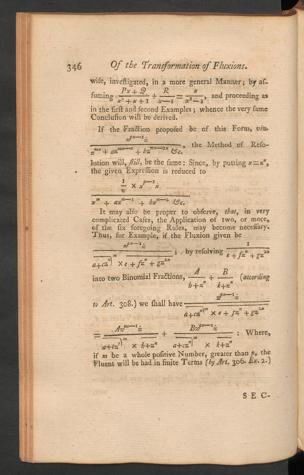 346 Of the Transformation of Fluxions.
wise, investigated, in a more general Manner; by as-
suming Px + Q / x² + x + 1 + R / x − 1 = x / x³ − 1, and proceeding as
in the first and second Examples; whence the very same
Conclusion will be derived.
If the Fraction proposed be of this Form, viz.
the Method of Reso-
lution will, still, be the same: Since, by putting x = zⁿ,
the given Expression is reduced to
It may also be proper to observe, that, in very
complicated Cases, the Application of two, or more,
of the six foregoing Rules, may become necessary.
Thus, for Example, if the Fluxion given be
; by resolving 1 / e + fzⁿ + gz²ⁿ
into two Binomial Fractions, A / b + zⁿ + B / k + zⁿ (according
to Art. 308.) we shall have
: Where,
if m be a whole positive Number, greater than p, the
Fluent will be had in finite Terms (by Art. 306. Ex. 2.)
SEC-